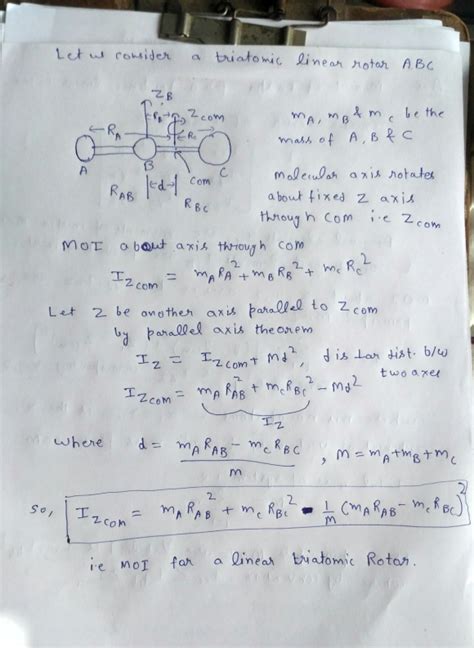 Let us consider a triatomic linear rotor ABC
Z_B
Z_com
R_A
R_B
R_C
A
B
C
R_AB
d
com
R_BC
m_A, m_B & m_C be the
mass of A, B & C
molecular axis rotates
about fixed Z axis
through com i.e Z_com
MOI about axis through com
I_Zcom = m_A R_A^2 + m_B R_B^2 + m_C R_C^2
Let Z be another axis parallel to Z_com
by parallel axis theorem
I_Z = I_Zcom + Md^2, d is lar dist. b/w
two axes
I_Zcom = m_A R_AB^2 + m_C R_BC^2 - Md^2
I_Z
where d = m_A R_AB - m_C R_BC / M , M = m_A + m_B + m_C
so, I_Zcom = m_A R_AB^2 + m_C R_BC^2 - 1/M (m_A R_AB - m_C R_BC)^2
i.e MOI for a linear triatomic Rotor.